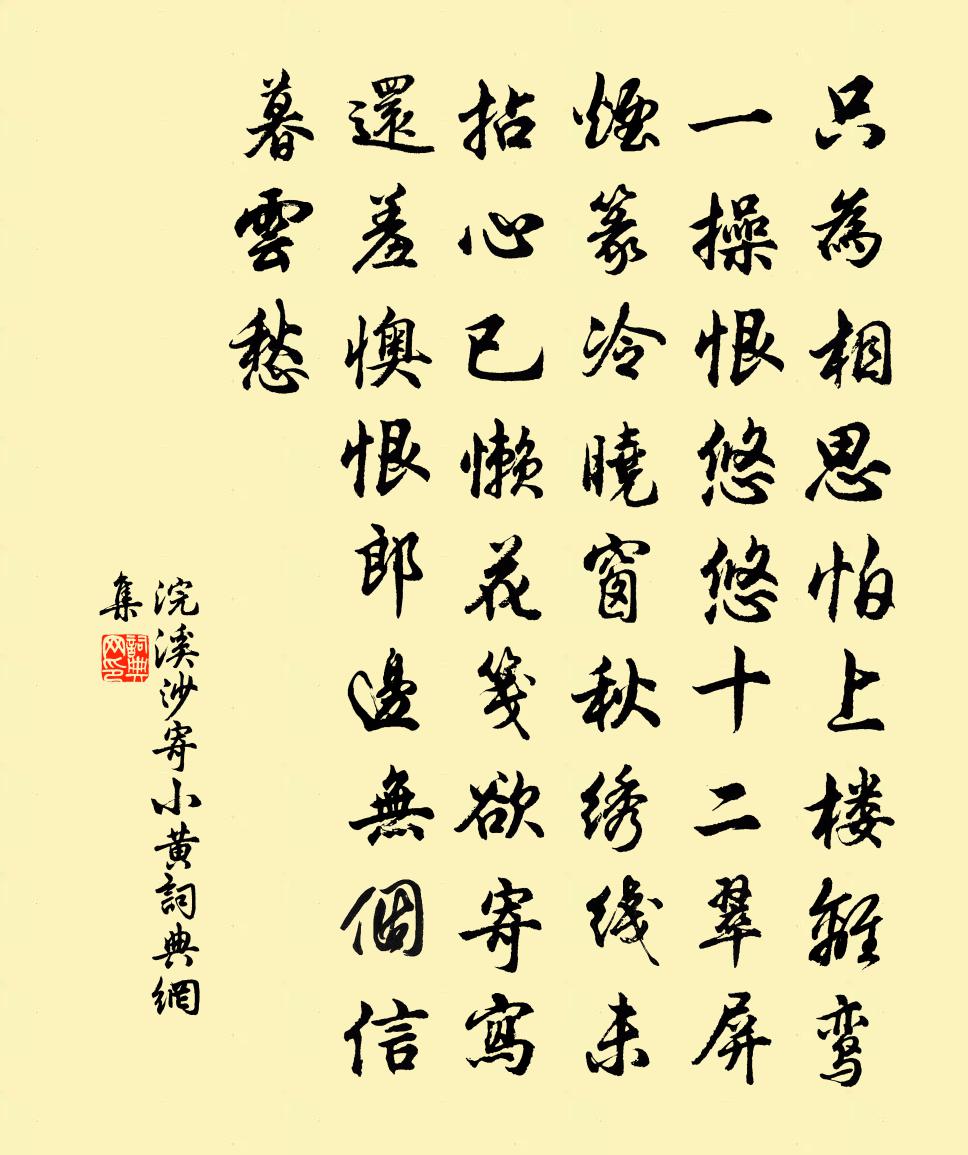 只為相思怕上楼離鸾
一操恨悠悠十二翠屏
煙篆冷曉窗秋绣线未
拈心已懒花笺欲寄寫
還羞懊恨郎邊無個信
暮雲愁
浣溪沙寄小黄詞典網
集
詞典
网印